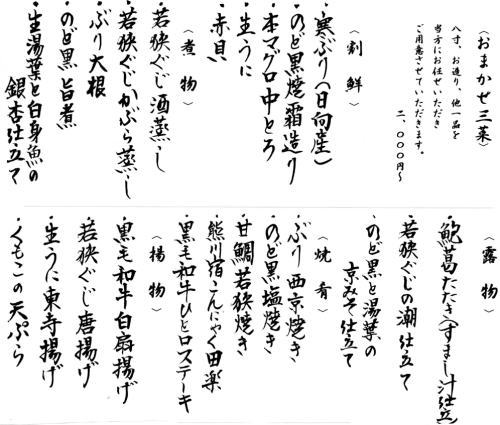 〈おまかせ三菜〉
八寸、お造り、他一品を
当方にお任せいただき
ご用意させていただきます。
二、〇〇〇円〜
〈割鮮〉
・寒ぶり(日向産)
・のど黒焼霜造り
・本マグロ中とろ
・生うに
・赤貝
〈煮物〉
・若狭ぐじ酒蒸し
・若狭ぐじかぶら蒸し
・ぶり大根
・のど黒旨煮
・生湯葉と白身魚の
銀杏仕立て
〈露物〉
・鮑葛たたき(すまし汁仕立
・若狭ぐじの潮仕立て
・のど黒と湯葉の
京みそ仕立て
〈焼肴〉
・ぶり西京焼き
・のど黒塩焼き
・甘鯛若狭焼き
・熊川宿こんにゃく田楽
・黒毛和牛ひと口ステーキ
〈揚物〉
・黒毛和牛白扇揚げ
・若狭ぐじ唐揚げ
・生うに東寺揚げ
・くもこの天ぷら